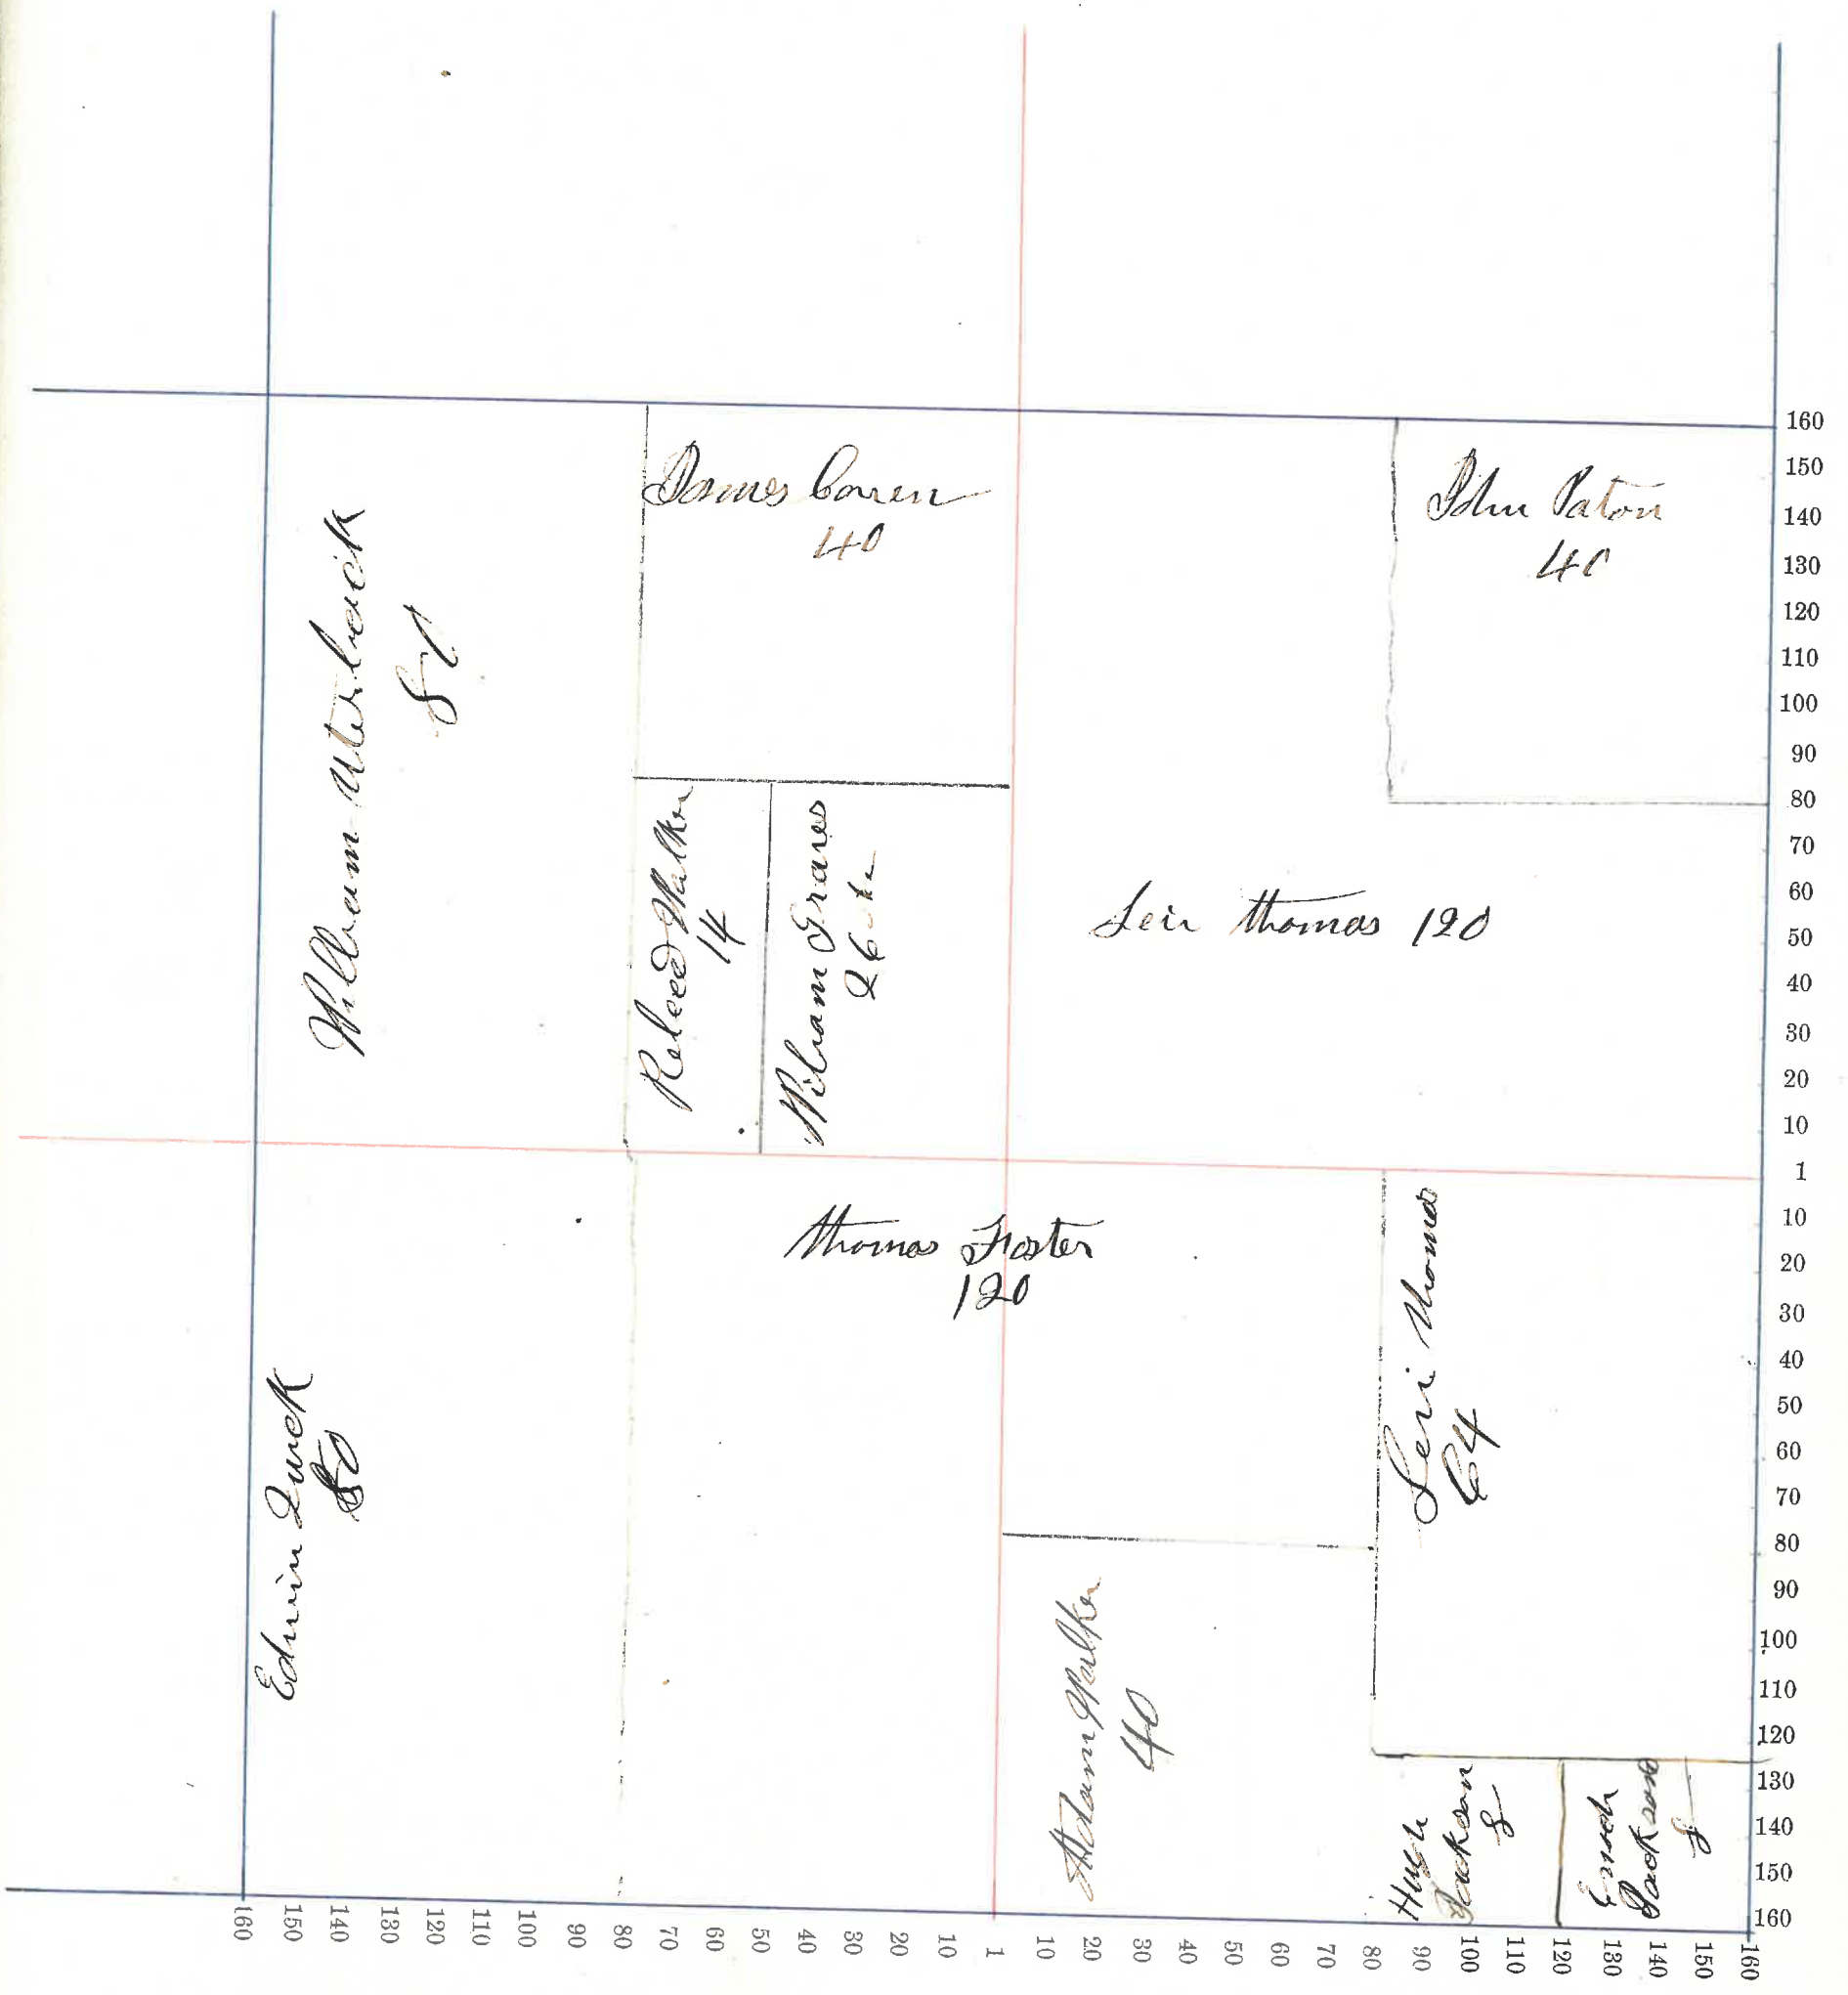 James Cowen
40
John Paton
40
William Uterback
80
Rebeed Walker
14
William Graves
26
Levi Thomas 120
Thomas Foster
120
Levi Thomas
64
Edwin Quick
80
Adam Walker
40
Hugh
Jackson
8
Enoch
Jackson
8
160
150
140
130
120
110
100
90
80
70
60
50
40
30
20
10
1
10
20
30
40
50
60
70
80
90
100
110
120
130
140
150
160
160 150 140 130 120 110 100 90 80 70 60 50 40 30 20 10 1 10 20 30 40 50 60 70 80 90 100 110 120 130 140 150 160